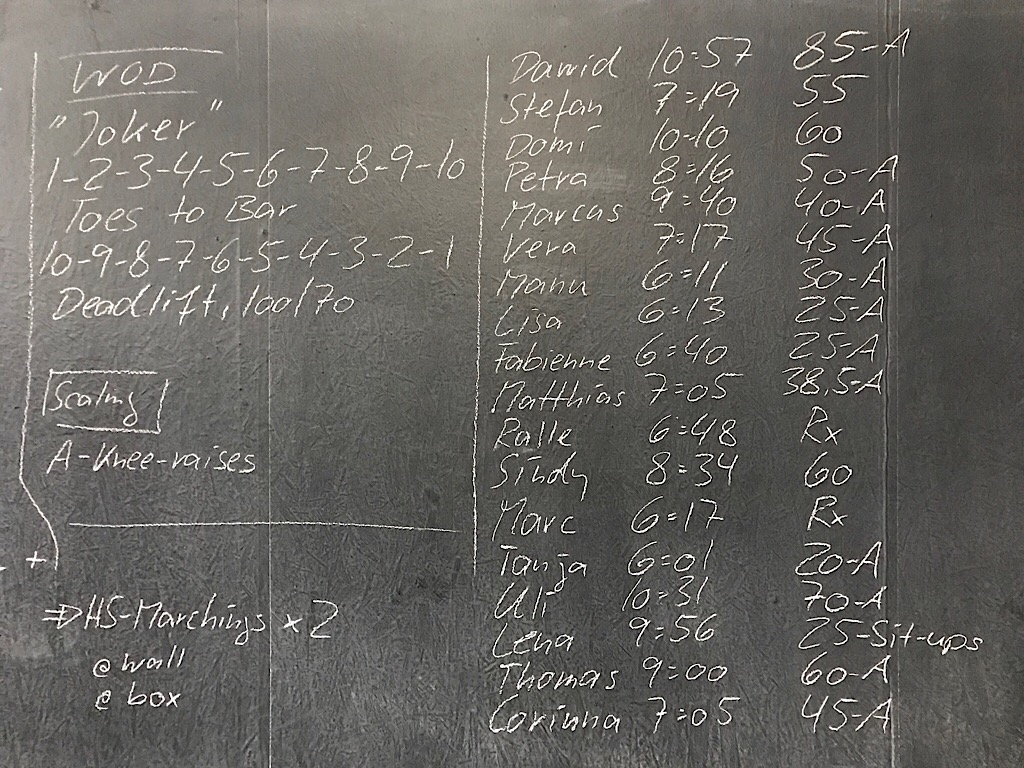 WOD
"Joker"
1-2-3-4-5-6-7-8-9-10
Toes to Bar
10-9-8-7-6-5-4-3-2-1
Deadlift, 100/70
Scaling
A-Knee-raises
+
⇒ HS-Marchings x2
@ wall
@ box
David 10:57 85-A
Stefan 7:19 55
Domi 10:10 60
Petra 8:16 50-A
Marcus 9:40 40-A
Vera 7:17 45-A
Manu 6:11 30-A
Lisa 6:13 25-A
Fabienne 6:40 25-A
Matthias 7:05 38,5-A
Ralle 6:48 Rx
Sindy 8:34 60
Marc 6:17 Rx
Tanja 6:01 20-A
Uli 10:31 70-A
Lena 9:56 25-Sit-ups
Thomas 9:00 60-A
Corinna 7:05 45-A